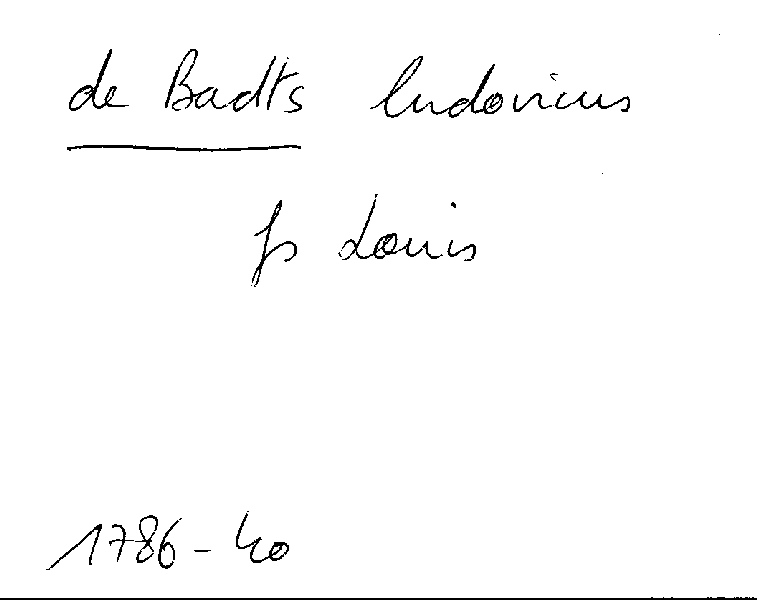 de Badts ludovicus
fs Louis
1786-40